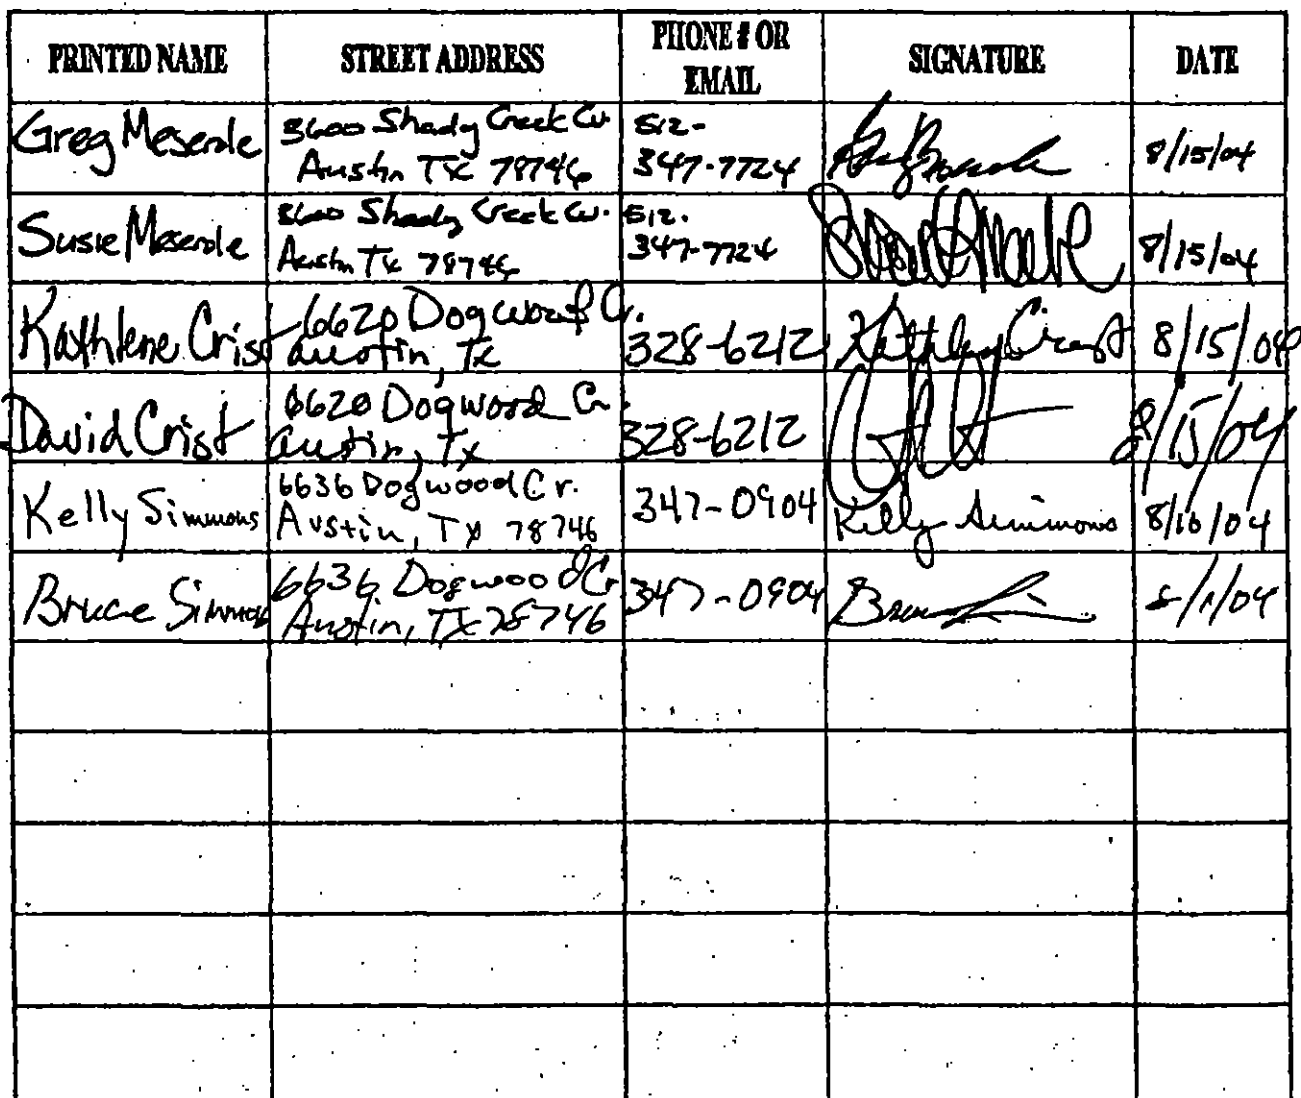 PRINTED NAME STREET ADDRESS PHONE # OR EMAIL SIGNATURE DATE
Greg Meserole 3600 Shady Creek Cv. 512-
Austin TX 78746 347-7724 8/15/04
Susie Meserole 3600 Shady Creek Cv. 512.
Austin TX 78746 347-7724 8/15/04
Kathlene Crist 6620 Dogwood Cr.
Austin, TX 328-6212 Kathlene Crist 8/15/04
David Crist 6620 Dogwood Cr.
Austin, Tx 328-6212 8/15/04
Kelly Simmons 6636 Dogwood Cr.
Austin, TX 78746 347-0904 Kelly Simmons 8/10/04
Bruce Simmons 6636 Dogwood Cr
Austin, TX 78746 347-0904